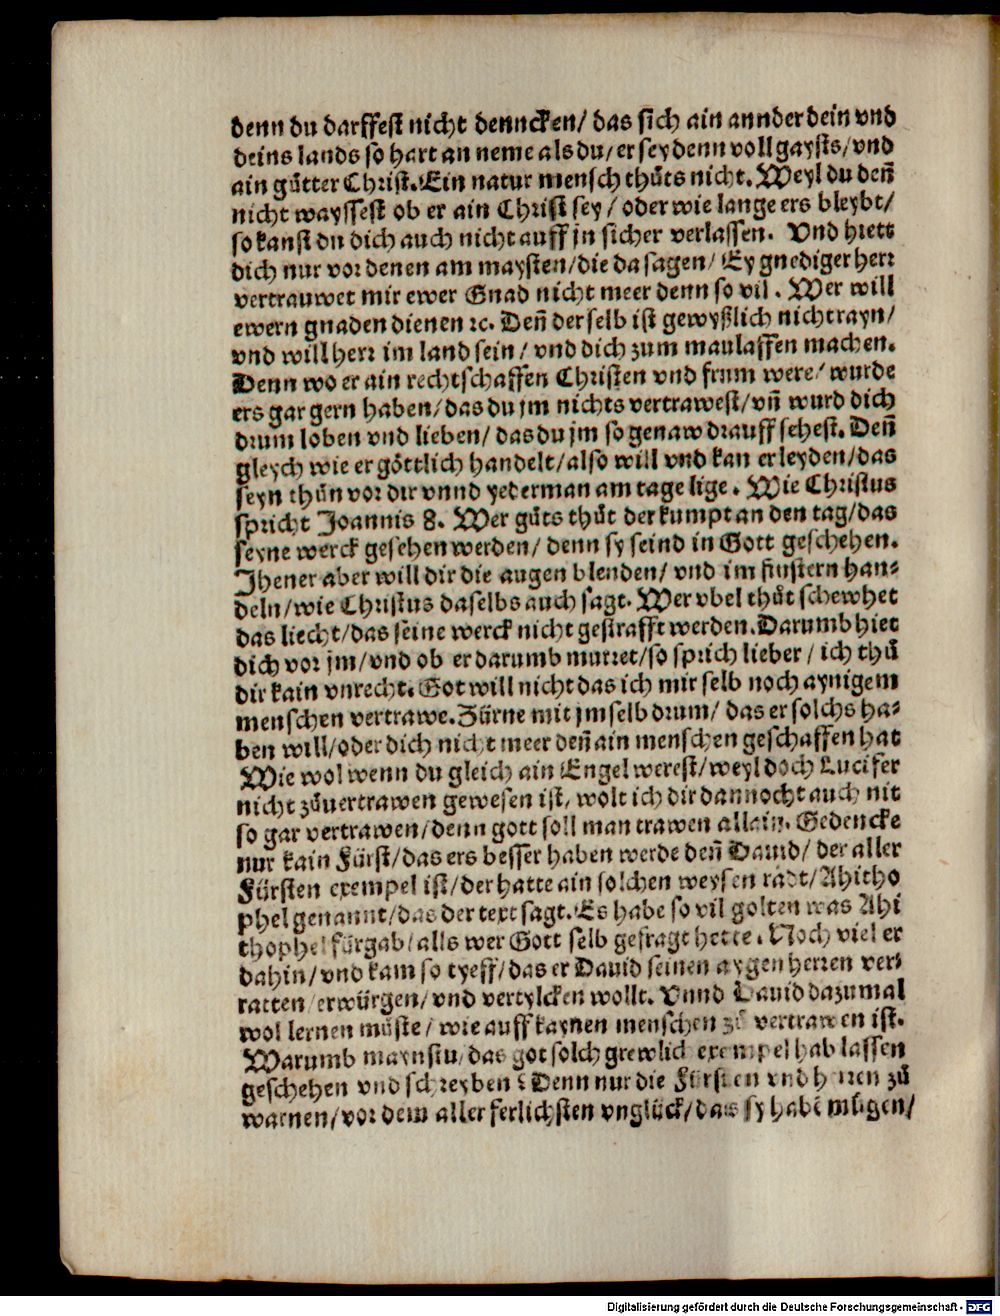 denn du darffest nicht denncken/ das sich ain annder dein vnd
deins lands so hart an neme als du/ er sey denn voll gaysts/ vnd
ain gůtter Christ. Ein natur mensch thůts nicht. Weyl du deñ
nicht wayssest ob er ain Christ sey / oder wie lange ers bleybt/
so kanst du dich auch nicht auff jn sicher verlassen. Vnd hiett
dich nur vor denen am maysten/ die da sagen/ Ey gnediger herr
vertrauwet mir ewer Gnad nicht meer denn so vil. Wer will
ewern gnaden dienen ꝛc. Deñ der selb ist gewyßlich nicht rayn/
vnd will herr im land sein / vnd dich zum maulaffen machen.
Denn wo er ain rechtschaffen Christen vnd frum were/ wurde
ers gar gern haben/ das du jm nichts vertrawest/ vñ wurd dich
drum loben vnd lieben/ das du jm so genaw drauff sehest. Deñ
gleych wie er göttlich handelt/ also will vnd kan er leyden/ das
seyn thůn vor dir vnnd yederman am tage lige. Wie Christus
spricht Joannis 8. Wer gůts thůt der kumpt an den tag/ das
seyne werck gesehen werden/ denn sy seind in Gott geschehen.
Jhener aber will dir die augen blenden/ vnd im finstern han⸗
deln/ wie Christus daselbs auch sagt. Wer vbel thůt schewhet
das liecht/ das seine werck nicht gestrafft werden. Darumb hiet
dich vor jm/ vnd ob er darumb murret/ so sprich lieber / ich thů
dir kain vnrecht. Got will nicht das ich mir selb noch aynigem
menschen vertrawe. Zürne mit jm selb drum/ das er solchs ha⸗
ben will/ oder dich nicht meer deñ ain menschen geschaffen hat
Wie wol wenn du gleich ain Engel werest/ weyl doch Lucifer
nicht zůuertrawen gewesen ist, wolt ich dir dannocht auch nit
so gar vertrawen/ denn gott soll man trawen allain. Gedencke
nur kain Fürst/ das ers besser haben werde deñ Dauid/ der aller
Fürsten exempel ist/ der hatte ain solchen weysen radt/ Ahitho
phel genannt/ das der text sagt. Es habe so vil golten was Ahi
thophel fürgab/ alls wer Gott selb gefragt hette. Noch viel er
dahin/ vnd kam so tyeff/ das er Dauid seinen aygen herren ver⸗
ratten/ erwürgen/ vnd vertylcken wollt. Vnnd Dauid dazumal
wol lernen můste/ wie auff kaynen menschen zů vertrawen ist.
Warumb maynstu/ das got solch grewlich exempel hab lassen
geschehen vnd schreyben? Denn nur die Fürsten vnd herren zů
warnen/ vor dem aller ferlichsten vnglück/ das sy habē mügen/
Digitalisierung gefördert durch die Deutsche Forschungsgemeinschaft - DFG